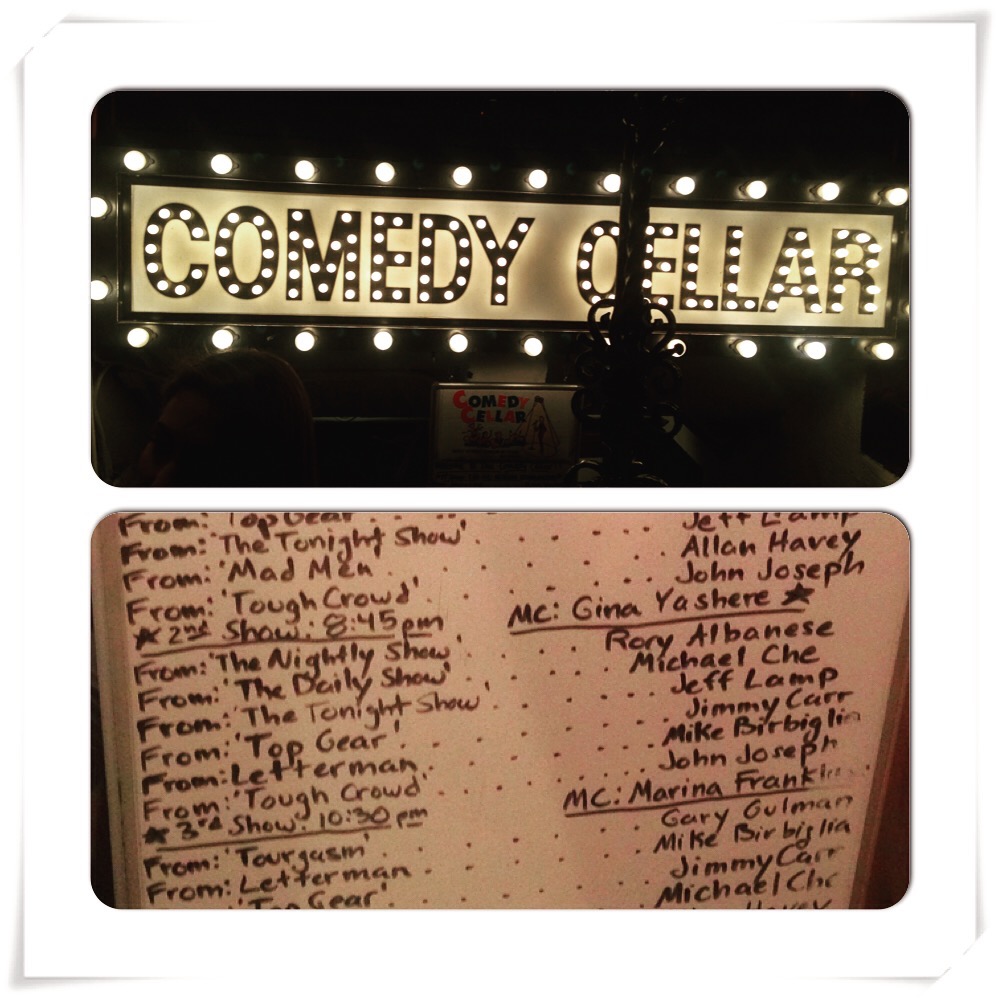 COMEDY CELLAR
COMEDY
CELLAR
From: 'Top Gear'
From: 'The Tonight Show' . . . . . Jeff Lamp
From: 'Mad Men' . . . . . Allan Havey
From: 'Tough Crowd' . . . . . John Joseph
★ 2nd Show: 8:45 pm MC: Gina Yashere ★
From: 'The Nightly Show' . . . . Rory Albanese
From: 'The Daily Show' . . . . Michael Che
From: 'The Tonight Show' . . . . Jeff Lamp
From: 'Top Gear' . . . . . Jimmy Carr
From: Letterman . . . . . Mike Birbiglia
From: 'Tough Crowd' . . . . . John Joseph
★ 3rd Show: 10:30 pm MC: Marina Franklin
From: 'Tourgasm' . . . . . Gary Gulman
From: Letterman . . . . . Mike Birbiglia
'Top Gear' . . . . . Jimmy Carr
Michael Che
Havey